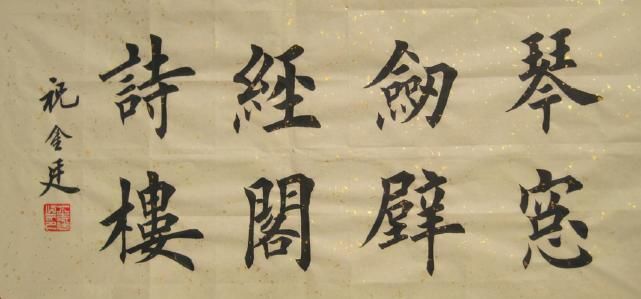 琴窓
劒壁
經閣
詩樓
祝金廷